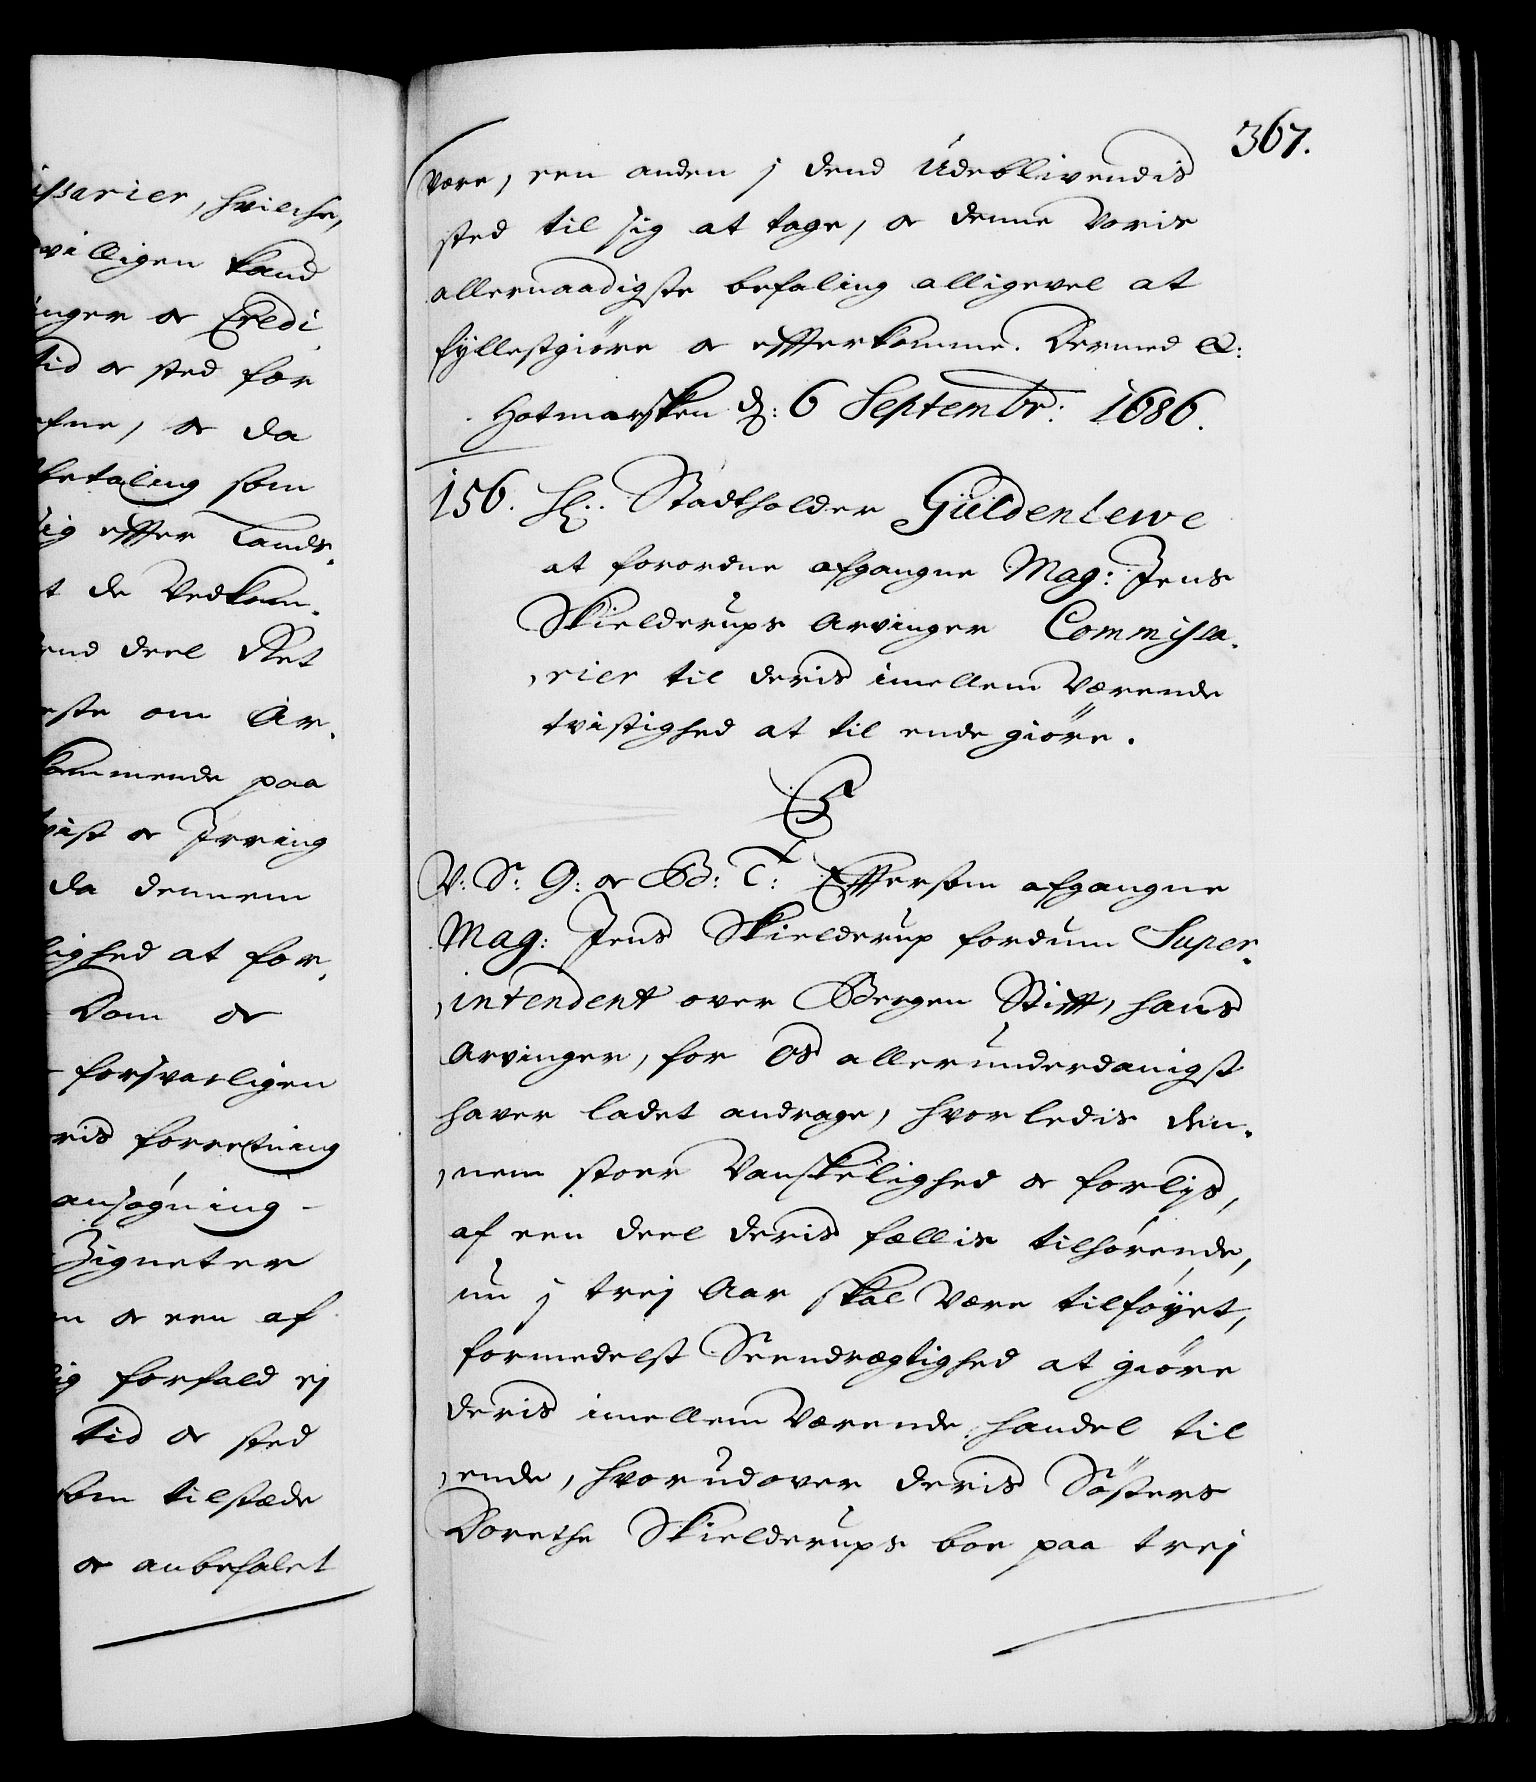 issarier, hvilche,
villigen kand
inger oc Credi
tid oc sted for
efne, oc da
betaling som
lig effter Lands-
t de Vedkom-
end deel Ret
este om Ar-
kommende paa
vist oc Irring
da dennem
lighed at for-
Dom oc
forsvarligen
ris forretning
ansøgning
Zigneter
n oc een af
ig forfald ej
tid oc sted
som tilstæde
oc anbefalet
367.
være, een anden j dend Udeblivendis
sted til sig at tage, oc denne Voris
allernaadigste befaling alligevel at
fyllestgiøre oc effterkomme. Dermed &:
Hotmarsken d: 6 Septembr: 1686.
156. H: Stadtholder Güldenlewe
at forordne afgangne Mag: Jens
Skielderups Arvinger Commissa-
rier til deris imellem Værende
tvistighed at til ende giøre.
C5
V: S: G: oc B: T: Effersom afgangne
Mag: Jens Skielderup fordum Super-
intendent over Bergen Stifft, hans
Arvinger, for Os allerunderdanigst
haver ladet andrage, hvorledis den-
nem stoer Vanskelighed oc forlijs,
af een deel deris fællis tilhørende,
nu j trej Aar skal være tilføyet,
formedelst Seendrægtighed at giøre
deris imellem Værende handel til
ende, hvorudover deris Søsters
Dorethe Skielderups boe paa trej